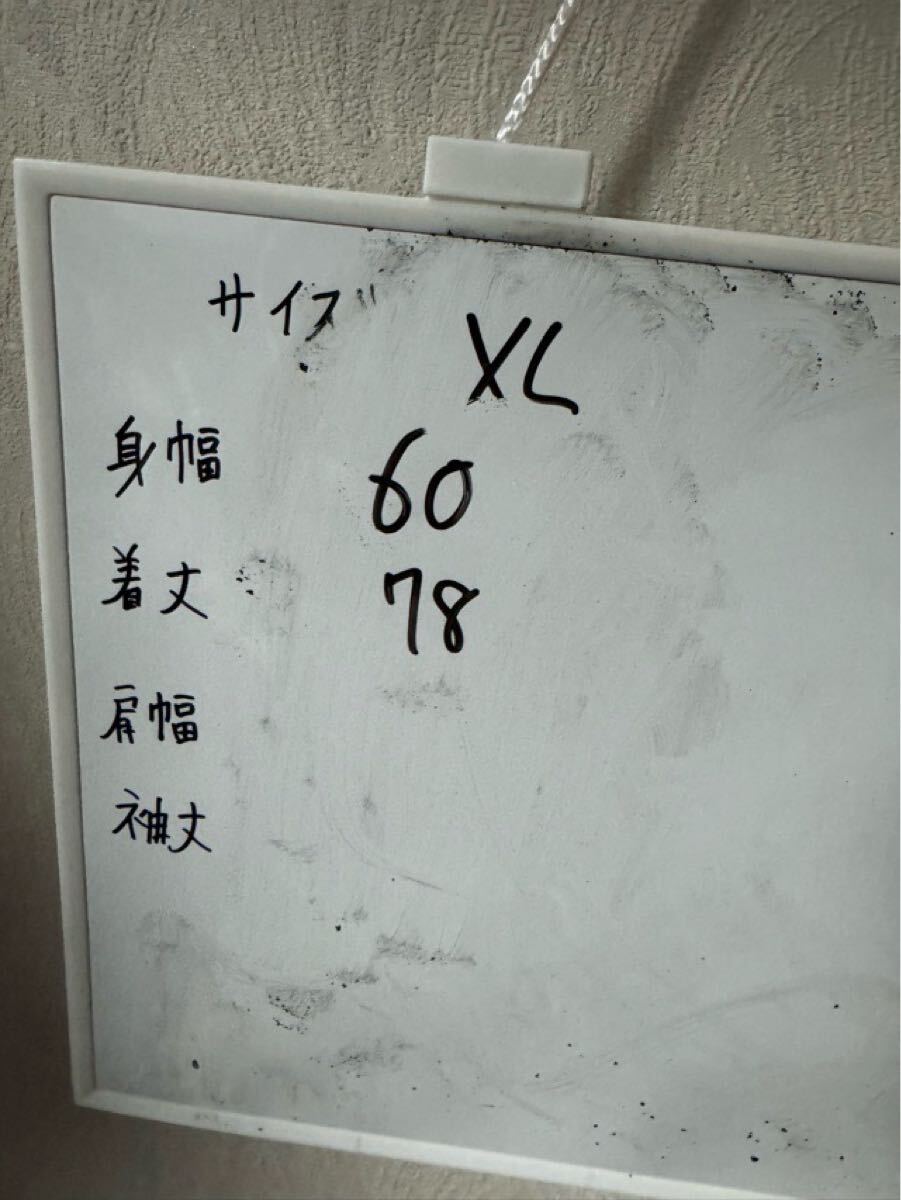 サイズ XL
身幅 60
着丈 78
肩幅
袖丈